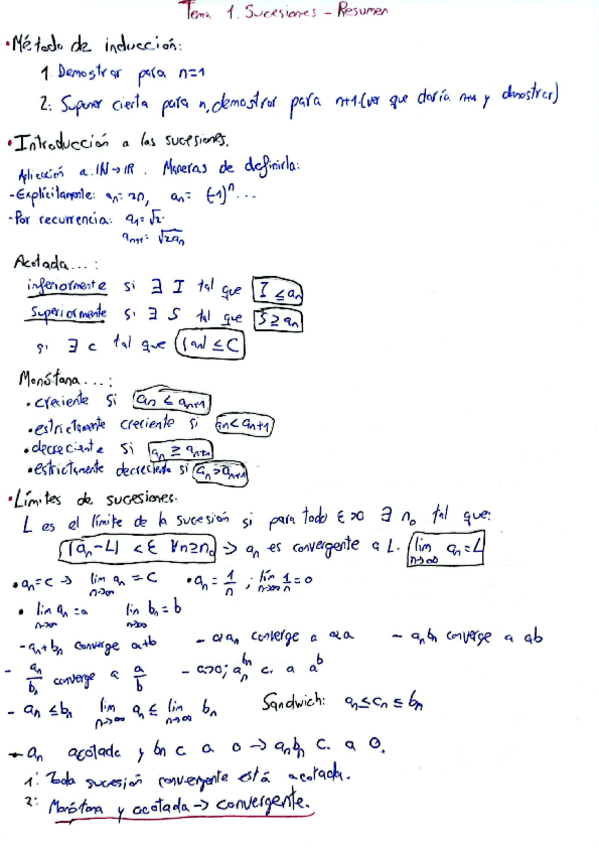 Tema 1. Sucesiones - Resumen
• Método de inducción:
1. Demostrar para n=1
2: Suponer cierta para n, demostrar para n+1. (ver que daría n+1 y demostrar)
• Introducción a las sucesiones.
Aplicación a: ℕ→ℝ. Maneras de definirla:
- Explícitamente: aₙ= 2n, aₙ= (-1)ⁿ...
- Por recurrencia: a₁=√2
aₙ₊₁= √2aₙ
Acotada...:
inferiormente si ∃ I tal que I ≤ aₙ
Superiormente si ∃ S tal que S ≥ aₙ
si ∃ c tal que |aₙ| ≤ C
Monótona...:
• creciente si aₙ ≤ aₙ₊₁
• estrictamente creciente si aₙ < aₙ₊₁
• decreciente si aₙ ≥ aₙ₊₁
• estrictamente decreciente si aₙ > aₙ₊₁
• Límites de sucesiones.
L es el límite de la sucesión si para todo ε>0 ∃ n₀ tal que:
|aₙ-L| < ε ∀n≥n₀ → aₙ es convergente a L. lim n→∞ aₙ = L
• aₙ=c → lim n→∞ aₙ = C • aₙ = 1/n ; lím n→∞ 1/n = 0
• lim n→∞ aₙ = a lim n→∞ bₙ = b
- aₙ+bₙ converge a+b - αaₙ converge a αa - aₙbₙ converge a ab
- aₙ/bₙ converge a a/b - a>0; aₙ^bₙ c. a a^b
- aₙ ≤ bₙ lim n→∞ aₙ ≤ lim n→∞ bₙ Sandwich: aₙ ≤ cₙ ≤ bₙ
- aₙ acotada y bₙ c a 0 → aₙbₙ c. a 0.
1: Toda sucesión convergente está acotada.
2: Monótona y acotada → convergente.